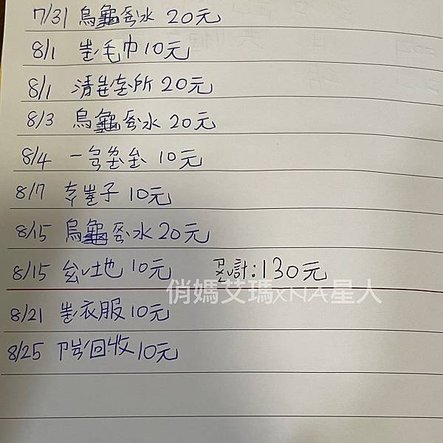 7/31 烏龜水 20元
8/1 毛巾 10元
8/1 清所 20元
8/3 烏龜水 20元
8/4 10元
8/7 子 10元
8/15 烏龜水 20元
8/15 地 10元 計:130元
俏媽艾瑪xNA星人
8/21 衣服 10元
8/25 回收 10元